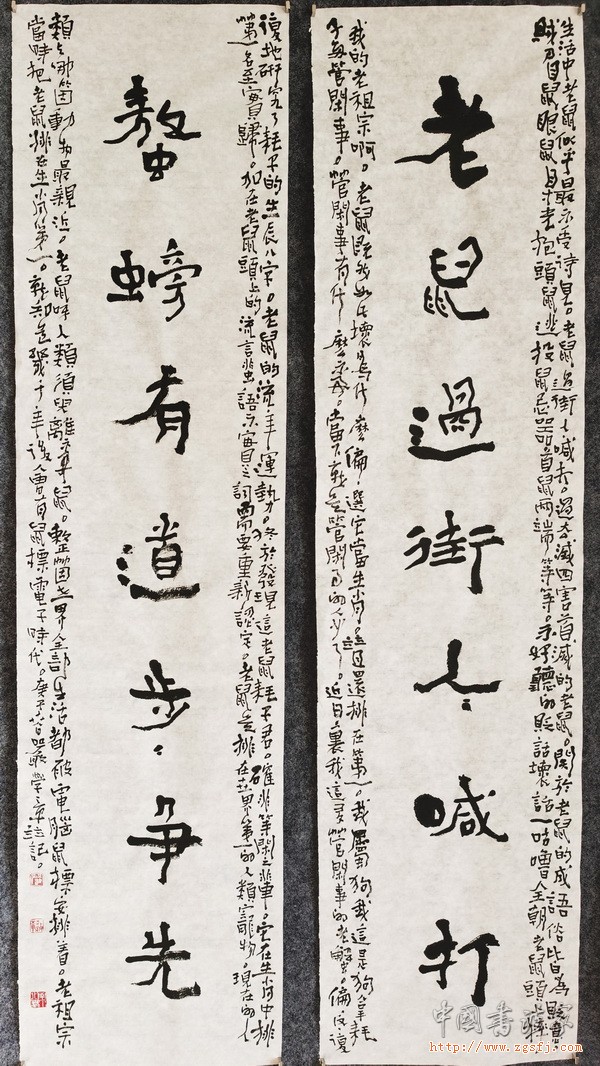 老鼠過街人人喊打
螯螃有道步步争先
生活中老鼠似乎最不受待見。老鼠過街人喊打。過去滅四害首滅的老鼠。關於老鼠的成語俗皆為貶意。
賊眉鼠眼鼠目寸光抱頭鼠逃投鼠忌器首鼠兩端等等。不好聽的貶話壞話一咕嚕全朝老鼠頭上
我的老祖宗啊。老鼠既然如此壞為什麼偏選它當生肖。這還排在第一。我屬狗我這是狗拿耗
子多管閑事。管閑事有什麼不好。當下就是管閑事的少了。近日裏我這愛管閑事的老
復地研究了耗子的生辰八字。老鼠的流年運勢。終於發現這老鼠耗子君。確非等閑之輩。它在生肖中排
第一名至實歸。加在老鼠頭上的流言蜚語不實之詞需要重新認定。老鼠是排在世界第一的人類寵物。現在的人
類與哪箇動物最親近。老鼠呀人類須臾離不開鼠。整箇世界全部生活都被電腦鼠標安排着。老祖宗
當時把老鼠排在生肖第一。就知道幾千年後會有鼠標電子時代。庚子
中國書法家
http://www.zgsfj.com